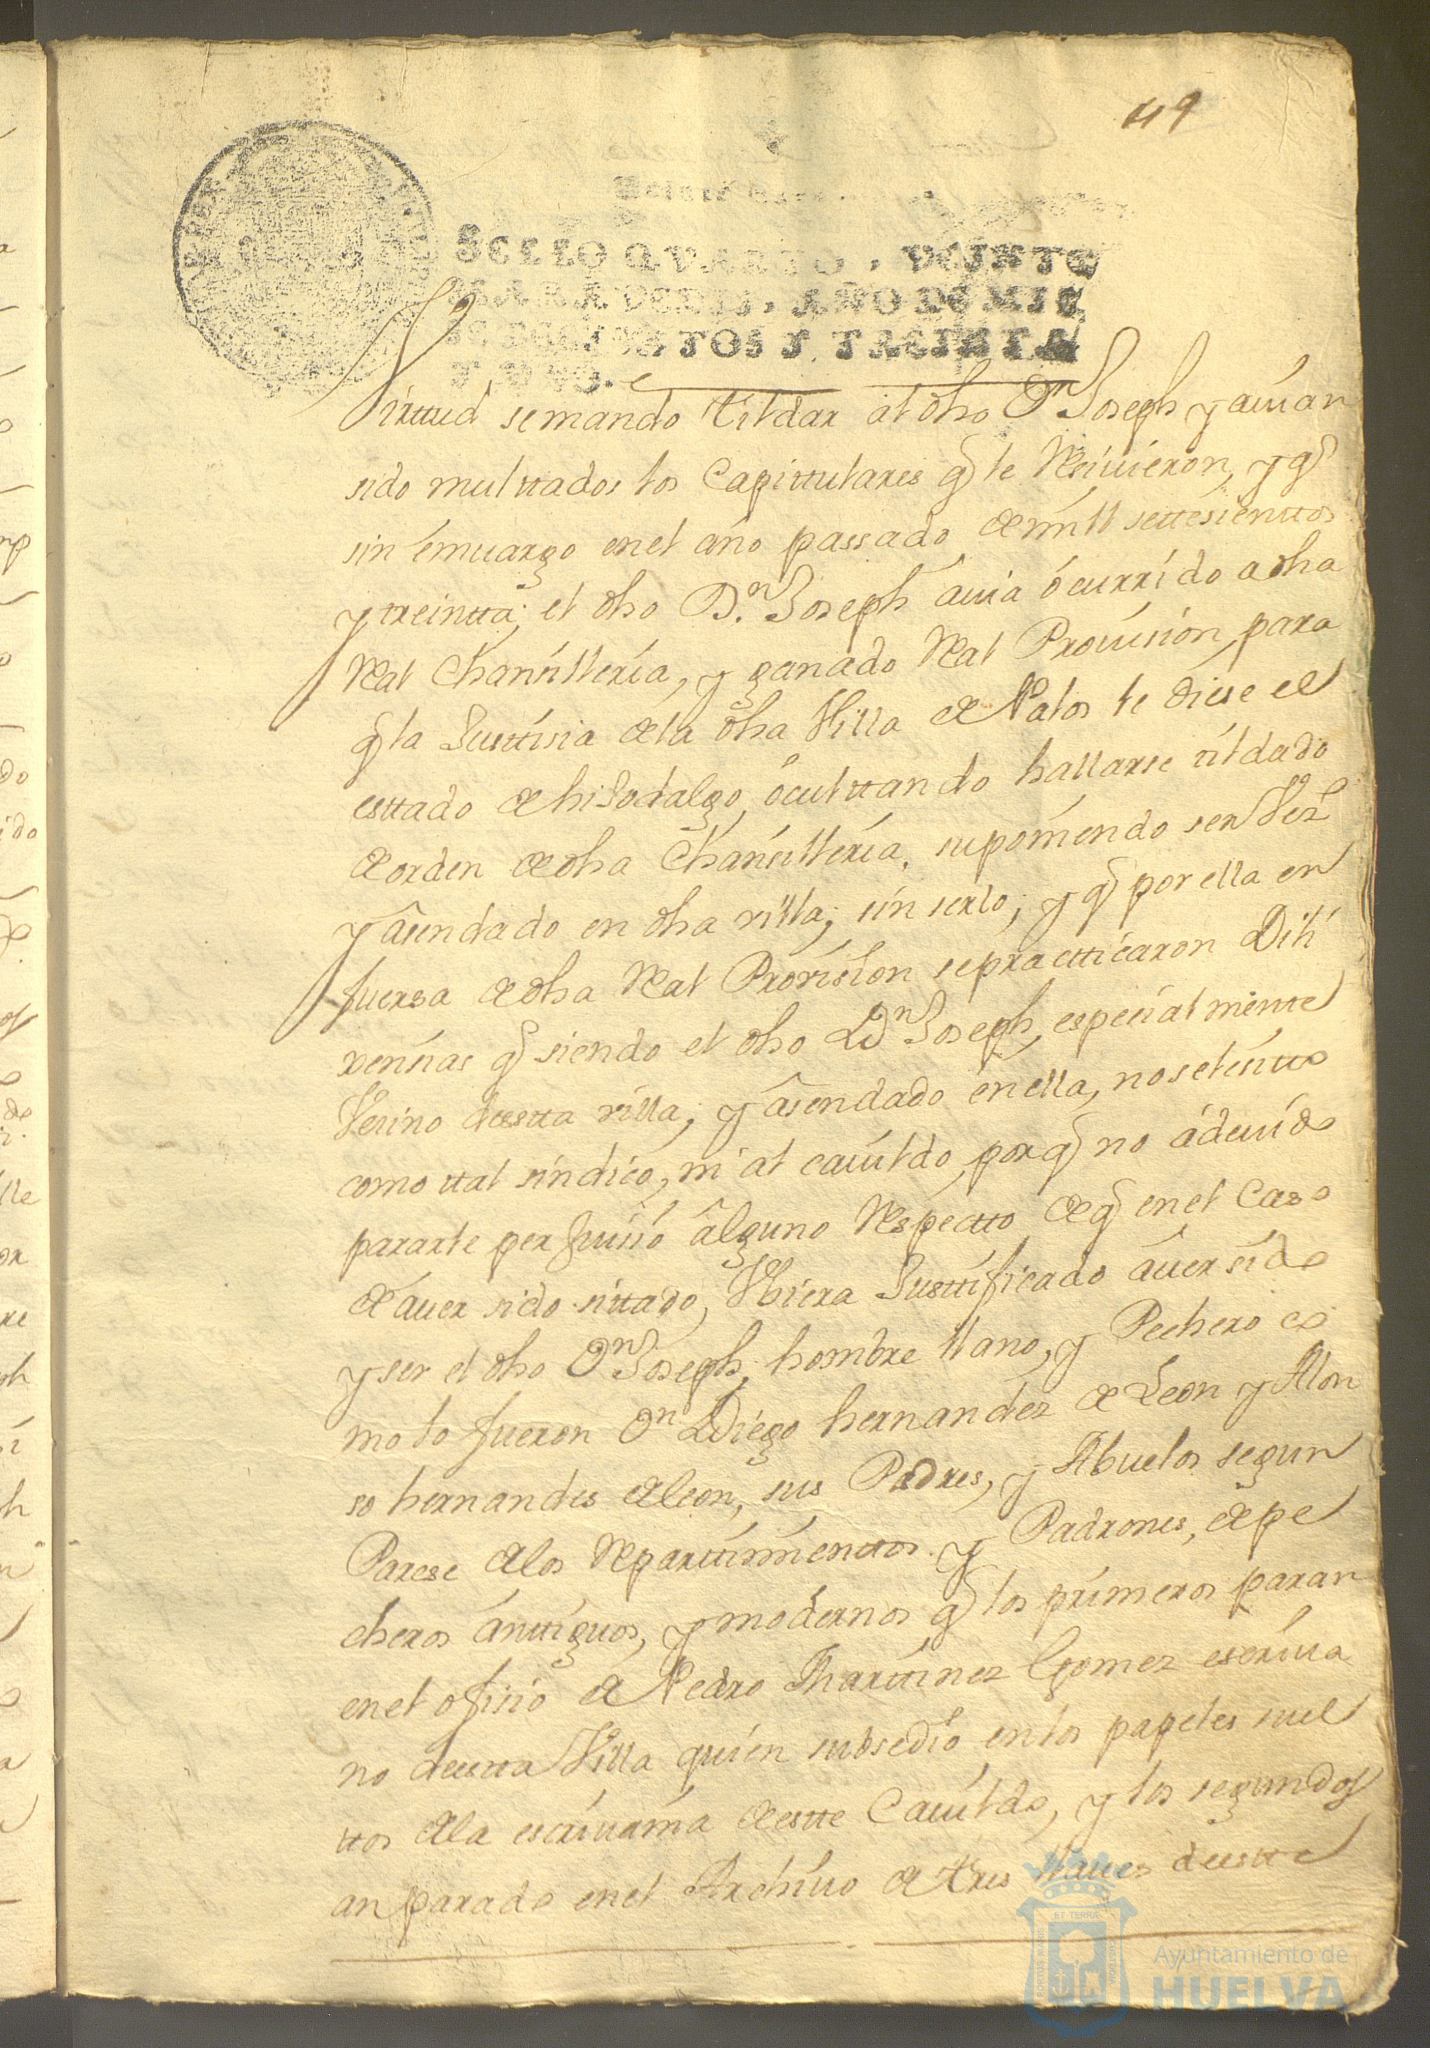 49
SELLO QVARTO, VEINTE
MARAVEDIS, AÑO DE MIL
SETECIENTOS Y TREINTA
Y VNO.
Virttud se mando tildar al dho Dn Joseph y auian
sido multtados los Capittulares q le Resiuieron, y q
sin emuargo en el año passado de mill settesienttos
y treintta, el dho Dn Joseph auia ocurrido a dha
Real Chansilleria, y ganado Real Prouision para
q la Justtisia de la dha Villa de Palos le diese el
esttado de hiJodalgo, oculttando hallarse tildado
de orden de dha Chansilleria, suponiendo ser Vezº
y asendado en dha villa, sin serlo; y q por ella en
fuersa de dha Real Provision se practticaron Dili
xensias q siendo el dho Dn Joseph, especialmentte
Vesino de estta villa, y asendado en ella, no se le sitto
como ttal sindico, ni al cauildo, porq no a deuido
pararle perJuisio alguno Respectto de q en el Caso
de auer sido sittado, Vbiera Justtificado auer sido
y ser el dho Dn Joseph, hombre llano, y Pechero co
mo lo fueron Dn Diego hernandez de Leon y Alon
so hernandes de leon, sus Padres, y Abuelos segun
Parese de los Reparttimienttos y Padrones, de pe
cheros anttiguos, y modernos q los primeros paran
en el ofisio de Pedro Marttinez Gomez escriua
no de estta Villa quien subsedio en los papeles suel
ttos de la escriuania de estte Cauildo, y los segundos
an parado en el Archiuo de tres llaues de estte
ET TERRA
Ayuntamiento de
HUELVA